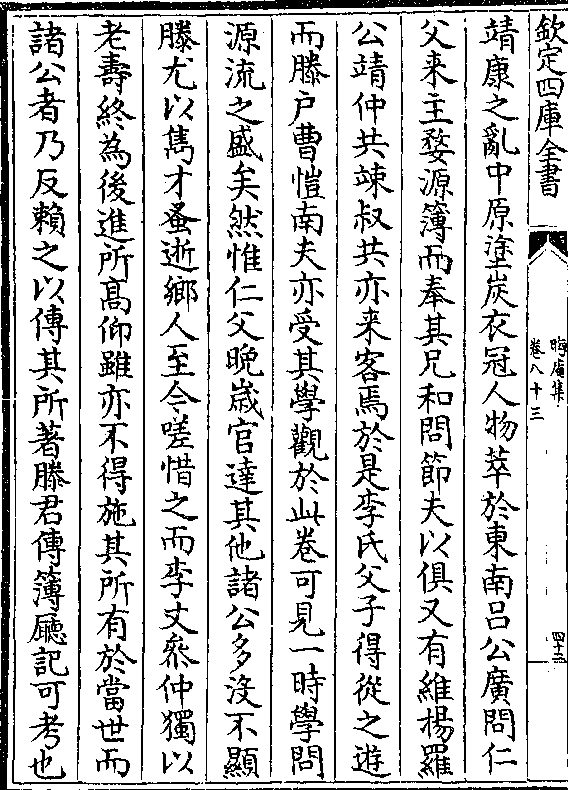 欽定四庫全書
晦庵集
卷八十三
四十二
靖康之亂中原塗炭衣冠人物萃於東南吕公廣問仁
父来主婺源簿而奉其兄和問節夫以俱又有維楊羅
公靖仲共竦叔共亦来客焉於是李氏父子得從之遊
而滕户曹愷南夫亦受其學觀於此卷可見一時學問
源流之盛矣然惟仁父晩嵗官達其他諸公多没不顯
滕尤以雋才蚤逝鄉人至今嗟惜之而李丈叅仲獨以
老壽終為後進所髙仰雖亦不得施其所有於當世而
諸公者乃反賴之以傳其所著滕君傳簿㕔記可考也